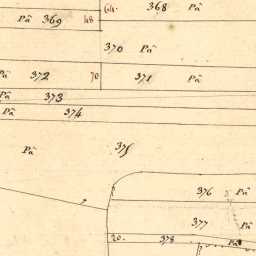 64. 368 Pâ
Pâ 369 48
370 Pâ
Pâ 372 70 371 Pâ
Pâ 373
Pâ 374
Pâ 375
376 Pâ
377 Pâ
20. 378 Pâ